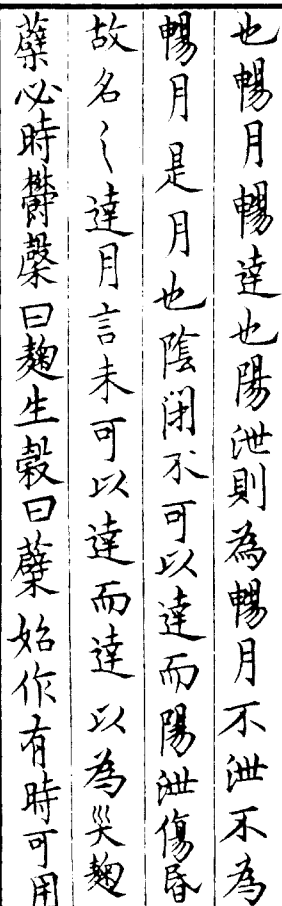 也暢月暢達也陽泄則為暢月不泄不為
暢月是月也陰閉不可以達而陽泄傷昏
故名之達月言未可以達而達以為災麴
蘖必時欝檗曰麹生穀曰蘖始作有時可用